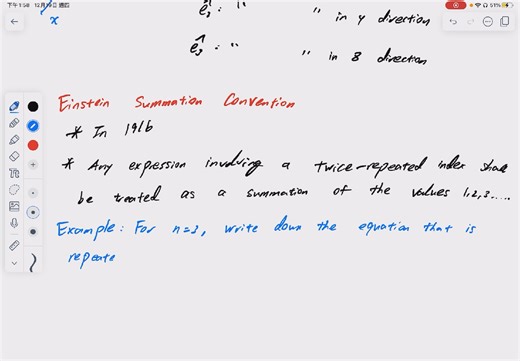 下午1:58 12月19日 週四
51%
x
ê₂ : " " in y direction
ê₃ : " " in z direction
Einstein Summation Convention
* In 1916
* Any expression involving a twice-repeated index shall
be treated as a summation of the values 1,2,3.....
Example: For n=3, write down the equation that is
repeate